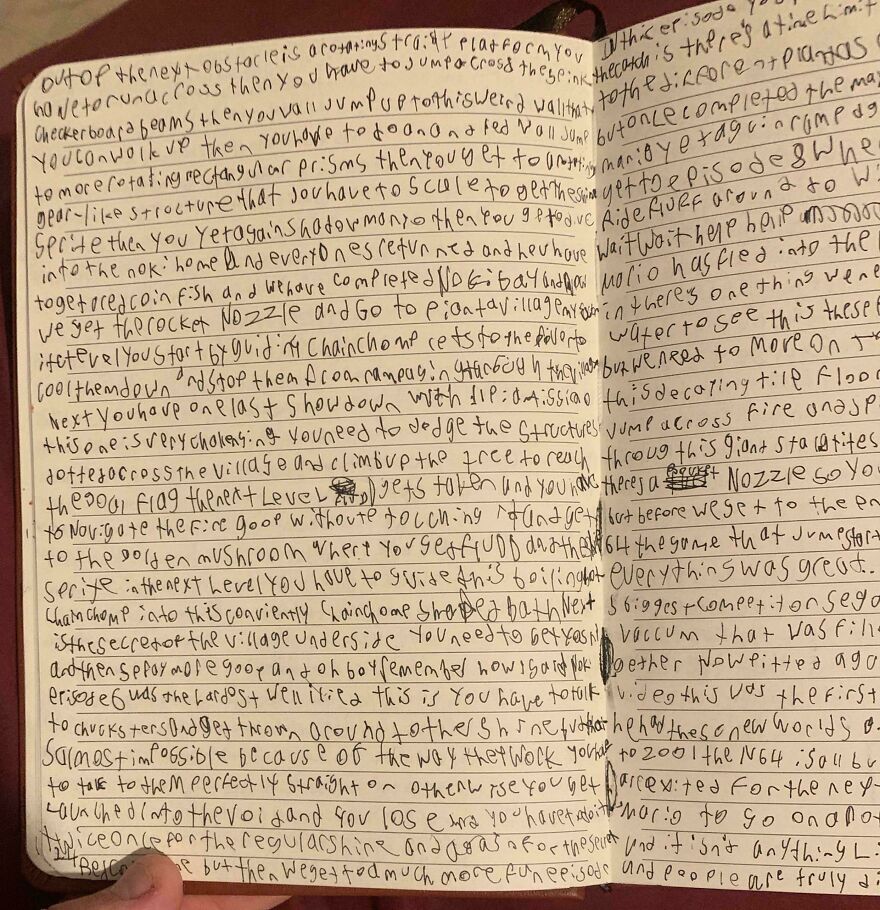 out of the next obstacle is a rotating straight platform you
have to run across then you have to jump across these pink
checkerboard beams then you wall jump up to this weird wall that
you can walk up then you have to do an and ted wall jump
to more rotating rectangular prisms then you get to
gear-like structure that you have to scale to get the shine
sprite then you yet again shadow mario then you get to dive
into the noki home and everyones returnned and
to get ored coin fish and we have completed Noki bay and now
we get the rocket Nozzle and Go to pianta village my
level you start by guiding chain chomp to the
cool them down and stop them from through the village
Next you have one last showdown with
this one is very you need to dodge the structures
dotted across the village and climb up the tree to reach
the goal flag the next level gets taken and you have
to Navigate the fire goop without touching it and get
to the golden mushroom where you get fludd and the
in the next level you have to guide this boiling hot
chain chomp into this chain chomp shaped bath Next
is the secret of the village underside you need to get
and then spray more goop and oh boy remember how I said Nok
episode 6 was the hardest well I lied this is you have to talk
to chucksters and get thrown around to other shine but that
s almost impossible because of the way they work you have
to talk to them perfectly straight on otherwise you get
Launched into the void and you lose and you have to do it
twice once for the regular shine and again for the secret
but then we get to a much more fun episode
In this episode you
the catch is there's a time limit
to the different piantas
but once completed the
yet again
get to episode 8 whe
Ride around to
wait wait here
Mario has fled into the
in there's one thing we ne
water to see this these
but we need to move on
this decaying tile floor
jump across fire and sp
throug this giant stalatites
theres a Nozzle so you
but before we get to the en
64 the game that Jumpstart
everything was great.
s biggest competitor sega
vaccum that was fill
oether Now pitted aga
video this was the first
he had these new worlds a
to 2001 the N64 is all bu
are exited for the nex
Mario to go on anot
and it isn't anything Li
and people are truly di